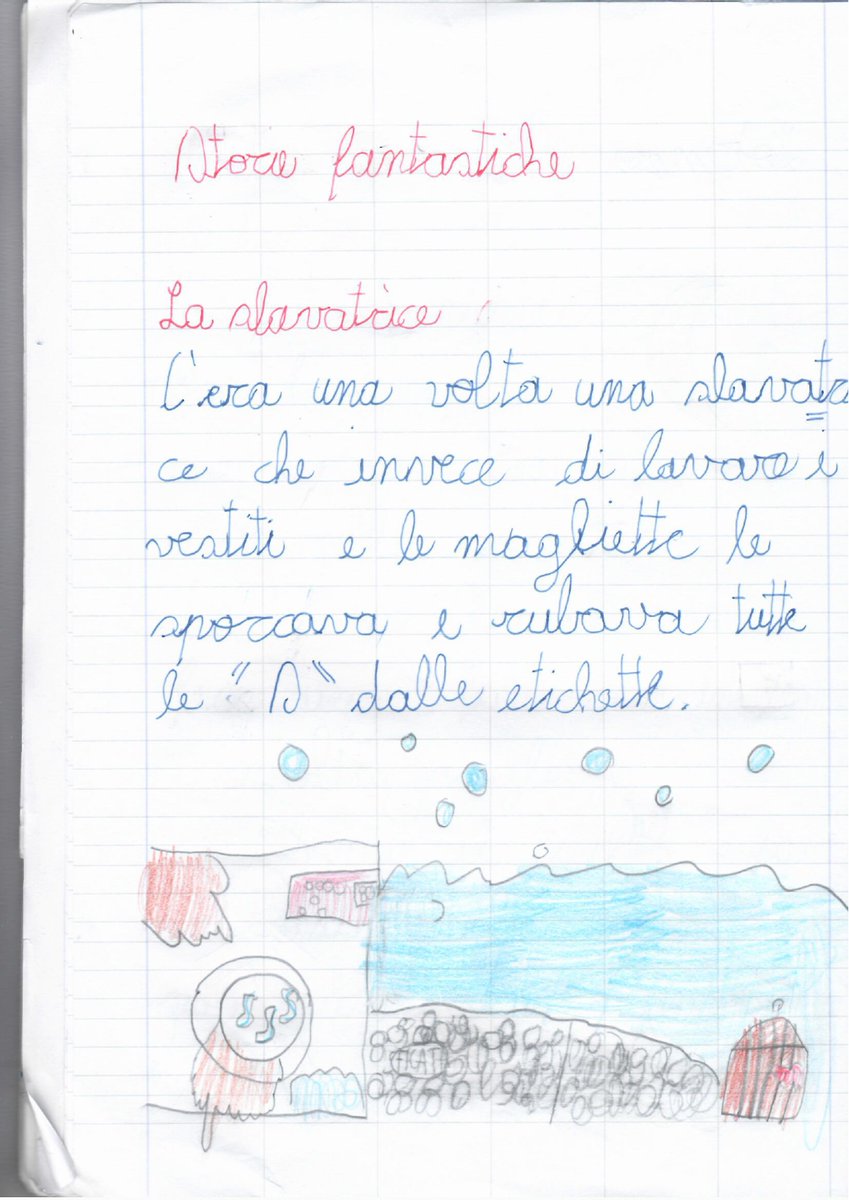 Storie fantastiche
La slavatrice
C'era una volta una slavatr
ce che invece di lavare i
vestiti e le magliette le
sporcava e rubava tutte
le "S" dalle etichette.